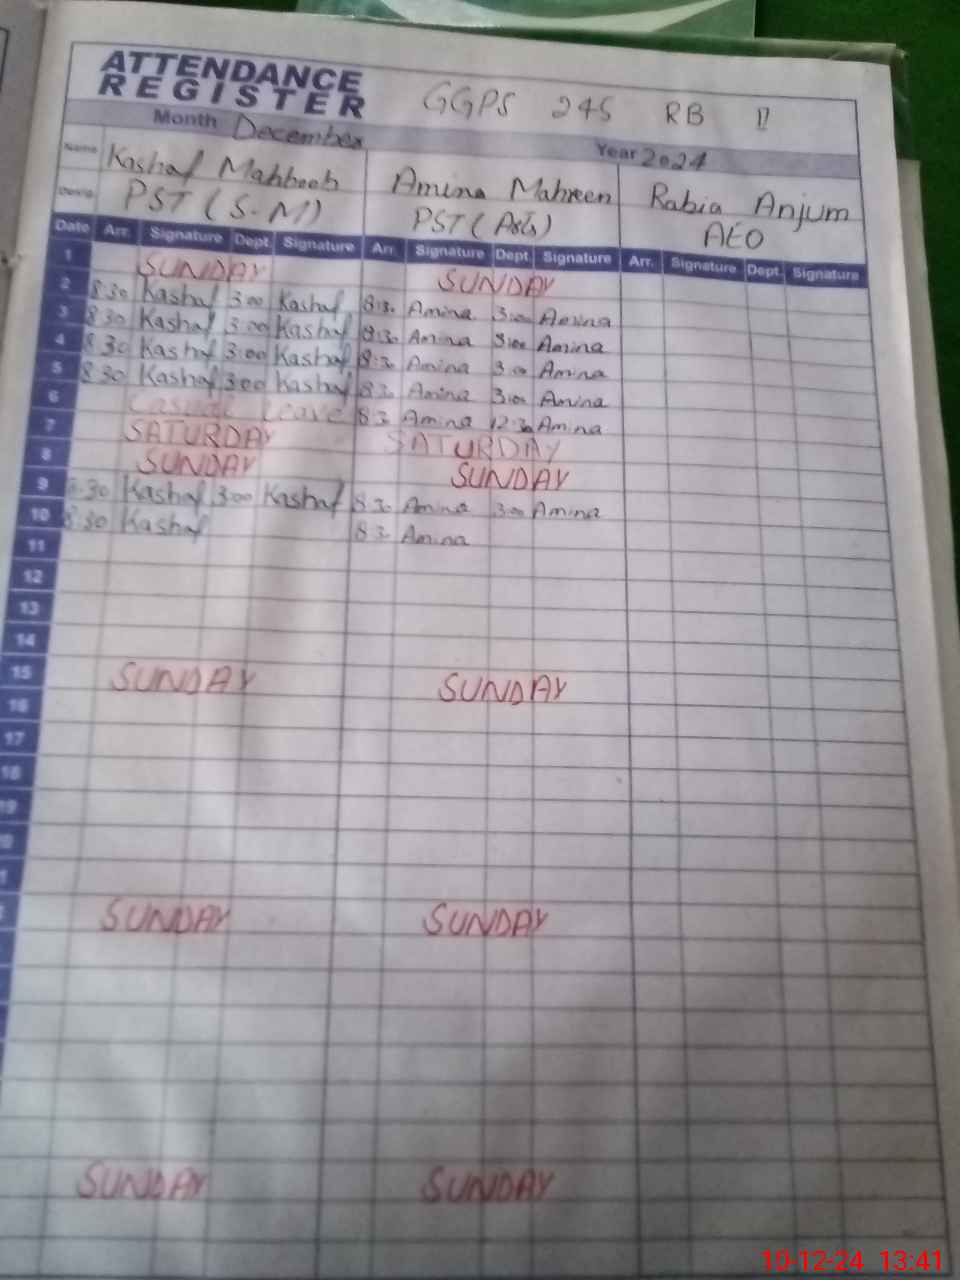 ATTENDANCE
REGISTER
GGPS 245 RB II
Month December Year 2024
Name Kashaf Mahboob Amina Mahreen Rabia Anjum
PST (S-M) PST (Arts) AEO
Date Arr. Signature Dept. Signature Arr. Signature Dept. Signature Arr. Signature Dept. Signature
1 SUNDAY SUNDAY
2 8:30 Kashaf 3:00 Kashaf 8:30 Amina 3:00 Amina
3 8:30 Kashaf 3:00 Kashaf 8:30 Amina 3:00 Amina
4 8:30 Kashaf 3:00 Kashaf 8:30 Amina 3:00 Amina
5 8:30 Kashaf 3:00 Kashaf 8:30 Amina 3:00 Amina
6 Casual Leave 8:30 Amina 12:30 Amina
7 SATURDAY SATURDAY
8 SUNDAY SUNDAY
9 8:30 Kashaf 3:00 Kashaf 8:30 Amina 3:00 Amina
10 8:30 Kashaf 8:30 Amina
11
12
13
14
15 SUNDAY SUNDAY
16
17
18
19
SUNDAY SUNDAY
SUNDAY SUNDAY
10-12-24 13:41